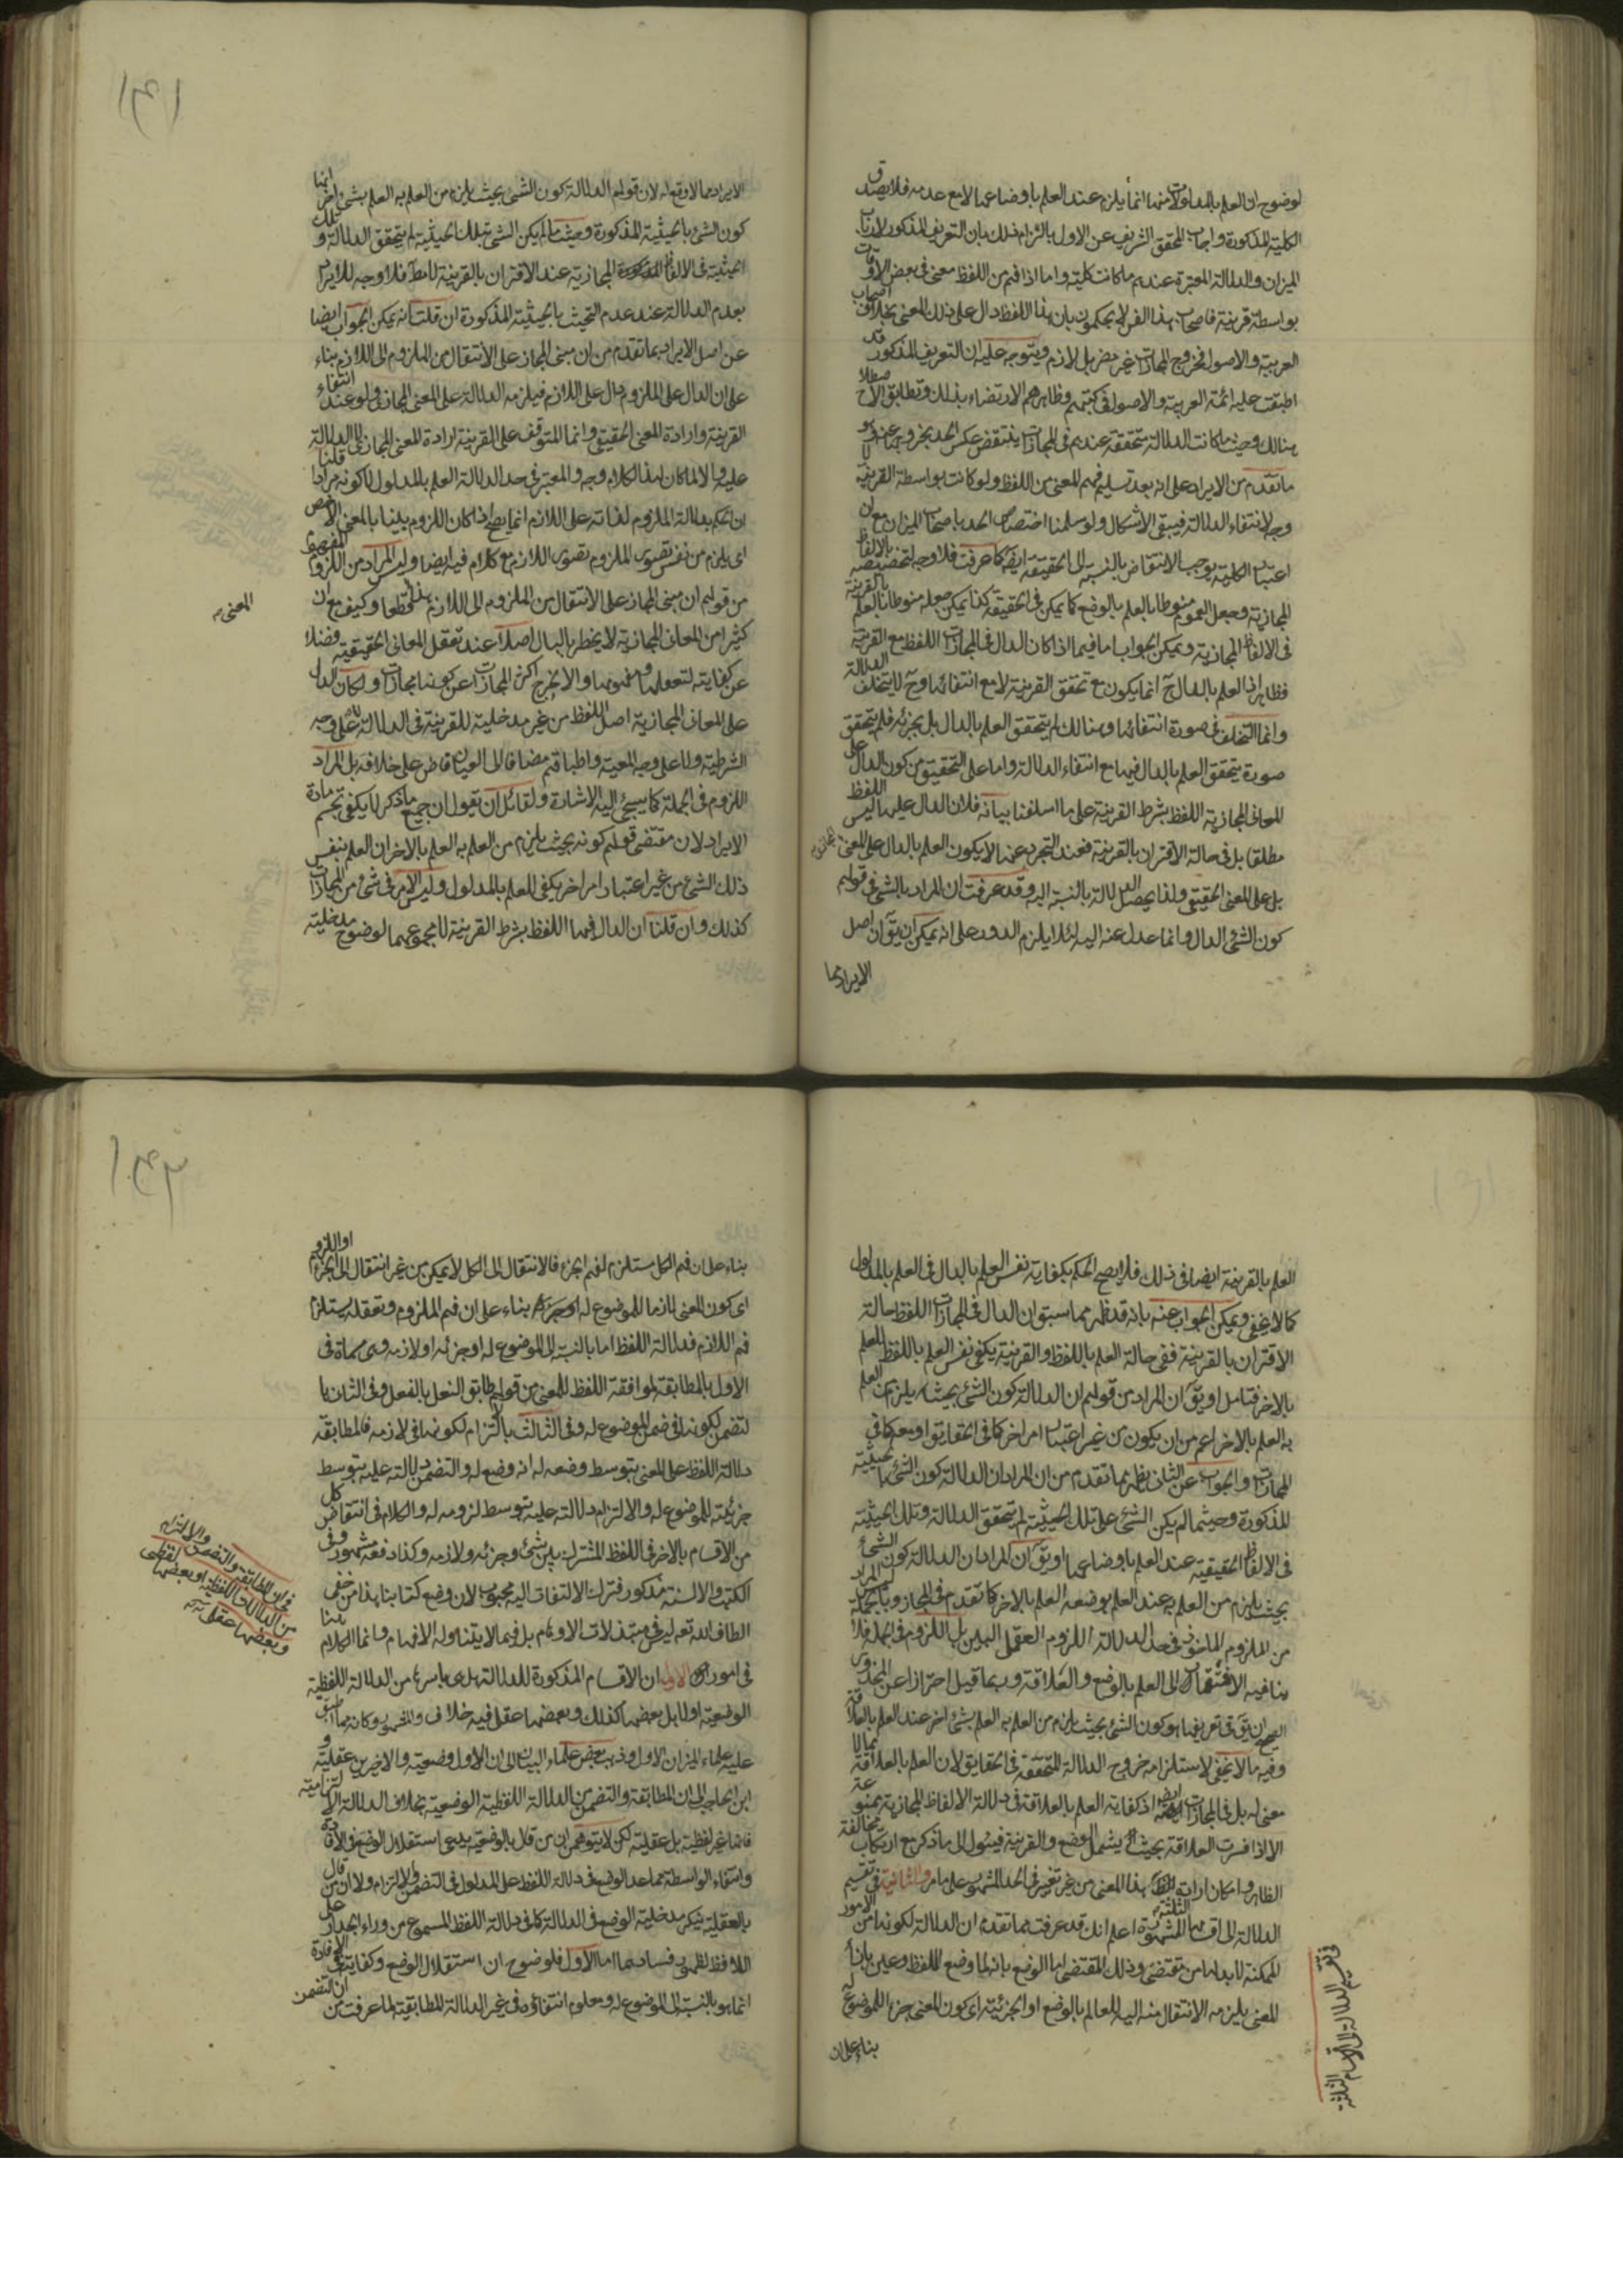 لوضوح ان العلم بالمدلولات منها انما يلزم عند العلم باوضاعها لا مع عدمه فلا يصدق
الكلية المذكورة واجاب المحقق الشريف عن الاول بالتزام ذلك بان التعريف المذكور لارباب
الميزان والدلالة المعتبرة عندهم ما كانت كلية واما اذا فهم من اللفظ معنى في بعض الاوقات
بواسطة قرينة فاصحاب هذا الفن لا يحكمون بان هذا اللفظ دال على ذلك المعنى بخلاف اصحاب
العربية والاصول فخروج المجازات غير مضر بل لازم ويتوجه عليه ان التعريف المذكور قد
اطبقت عليه ائمة العربية والاصول في كتبهم وظاهرهم الارتضاء بذلك وتطابق الاصطلاح
هنالك وحيث ما كانت الدلالة متحققة عندهم في المجازات ينتقض عكس الحد بخروجها عنه
ما تقدم من الايراد على انه بعد تسليم فهم المعنى من اللفظ ولو كانت بواسطة القرينة لا
وجه لانتفاء الدلالة فيبقى الاشكال ولو سلمنا اختصاص الحد باصحاب الميزان مع ان
اعتبار الكلية يوجب الانتقاض بالنسبة الى الحقيقة ايضا كما عرفت فلا وجه لتخصيصه بالالفاظ
المجازية وجعل العموم منوطا بالعلم بالوضع كما يمكن في الحقيقة كذا يمكن جعله منوطا بالعلم بالقرينة
في الالفاظ المجازية ويمكن الجواب اما فيما اذا كان الدال في المجازات اللفظ مع القرينة
فظاهر اذ العلم بالدال ح انما يكون مع تحقق القرينة لا مع انتفائها وح لا يتخلف الدلالة
وانما التخلف في صورة انتفائها وهنالك لم يتحقق العلم بالدال بل بجزئه فلم يتحقق
صورة يتحقق العلم بالدال فيها مع انتفاء الدلالة واما على التحقيق من كون الدال على
المعاني المجازية اللفظ بشرط القرينة على ما اسلفنا بيانه فلان الدال عليها ليس اللفظ
مطلقا بل في حالة الاقتران بالقرينة فعند التجرد عنها لا يكون العلم بالدال على المعنى المجازي
بل على المعنى الحقيقي ولذا يحصل الدلالة بالنسبة اليه وقد عرفت ان المراد بالشئ في قولهم
كون الشئ الدال وانما عدل عنه اليه لئلا يلزم الدور على انه يمكن ان يق ان اصل
الايراد مما
١٣١
الايراد مما لا وقع له لان قولهم الدلالة كون الشئ بحيث يلزم من العلم به العلم بشئ اخر انما
كون الشئ بالحيثية المذكورة وحيث ما لم يكن الشئ بتلك الحيثية لم يتحقق الدلالة وتلك
الحيثية في الالفاظ المجازية عند الاقتران بالقرينة لا مط فلا وجه للايراد
بعدم الدلالة عند عدم التحيث بالحيثية المذكورة ان قلت انه يمكن الجواب ايضا
عن اصل الايراد بما تقدم من ان مبنى المجاز على الانتقال من الملزوم الى اللازم بناء
على ان الدال على الملزوم دال على اللازم فيلزمه الدلالة على المعنى المجازي ولو عند انتفاء
القرينة وارادة المعنى الحقيقي وانما المتوقف على القرينة ارادة المعنى المجازي لا الدلالة
عليه والا لما كان لهذا الكلام وجه والمعتبر في حد الدلالة العلم بالمدلول لا كونه مرادا قلنا
ان الحكم بدلالة الملزوم لذاته على اللازم انما يصح اذا كان اللزوم بينا بالمعنى الاخص
اى يلزم من نفس تصور الملزوم تصور اللازم مع كلام فيه ايضا وليس المراد من اللزوم المفهوم
من قولهم ان مبنى المجاز على الانتقال من الملزوم الى اللازم هذا قطعا وكيف مع ان
المعنى
كثيرا من المعاني المجازية لا يخطر بالبال اصلا عند تعقل المعاني الحقيقية فضلا
عن كفايته لتعقلها وفهمها والا لخرج اكثر المجازات عن كونها مجازات ولكان الدال
على المعاني المجازية اصل اللفظ من غير مدخلية للقرينة في الدلالة لا على وجه
الشرطية ولا على وجه المعية واطباقهم مضافا الى العيان قاض على خلافه بل المراد
اللزوم في الجملة كما سيجئ اليه الاشارة ولقائل ان يقول ان جميع ما ذكر لا يكفي لحسم مادة
الايراد لان مقتضى قولهم كونه بحيث يلزم من العلم به العلم بالاخر ان العلم بنفس
ذلك الشئ من غير اعتبار امر اخر يكفي للعلم بالمدلول وليس الامر في شئ من المجازات
كذلك وان قلنا ان الدال فيها اللفظ بشرط القرينة لا مجموعهما لوضوح مدخلية
العلم بالقرينة ايضا في ذلك فلا يصح الحكم بكفاية نفس العلم بالدال في العلم بالمدلول
كما لا يخفى ويمكن الجواب عنه بانه قد ظهر مما سبق ان الدال في المجازات اللفظ حالة
الاقتران بالقرينة ففي حالة العلم باللفظ والقرينة يكفي نفس العلم باللفظ للعلم
بالاخر فتامل او يق ان المراد من قولهم ان الدلالة كون الشئ بحيث يلزم من العلم
به العلم بالاخر اعم من ان يكون من غير اعتبار امر اخر كما في الحقايق او معه كما في
المجازات والجواب عن الثاني يظهر بما تقدم من ان المراد ان الدلالة كون الشئ بالحيثية
المذكورة وحيثما لم يكن الشئ على تلك الحيثية لم يتحقق الدلالة وتلك الحيثية
في الالفاظ الحقيقية عند العلم باوضاعها او يق ان المراد ان الدلالة كون الشئ
بحيث يلزم من العلم به عند العلم بوضعه العلم بالاخر كما تقدم في المجاز وبالجملة ليس المراد
من الملزوم الماخوذ في حد الدلالة اللزوم العقلي البين بل اللزوم في الجملة فلا
ينافيه الافتقار الى العلم بالوضع والعلاقة وربما قيل احترازا عن المحذور
الصحيح ان يق في تعريفها هو كون الشئ بحيث يلزم من العلم به العلم بشئ اخر عند العلم بالعلاقة
وفيه ما لا يخفى لاستلزامه خروج الدلالة المتحققة في الحقايق لان العلم بالعلاقة مما لا
معنى له بل في المجازات ايضا اذ كفاية العلم بالعلاقة في دلالة الالفاظ المجازية ممنوعة
الا اذا فسرت العلاقة بحيث يشمل الوضع والقرينة فيئول الى ما ذكر مع ارتكاب مخالفة
الظاهر وامكان ارادة هذا المعنى من غير تغيير في الحد المشهور على ما مر والثانية في تقسيم
الدلالة الى اقسامها الثلثة المشهورة اعلم انك قد عرفت مما تقدم ان الدلالة لكونها من الامور
الممكنة لا بد لها من مقتضى وذلك المقتضى اما الوضع بانه لما وضع اللفظ وعين بازاء
المعنى يلزمه الانتقال منه اليه للعالم بالوضع او الجزئية اى كون المعنى جزءا للموضوع له
في تقسيم الدلالة الى الاقسام الثلثة
بناء على ان
١٣٢
بناء على ان فهم الكل مستلزم لفهم الجزء فالانتقال الى الكل لا يمكن من غير انتقال الى الجزء او اللزوم
اى كون المعنى لازما للموضوع له بناء على ان فهم الملزوم وتعقله يستلزم
فهم اللازم فدلالة اللفظ اما بالنسبة الى الموضوع له او جزئه او لازمه وهى مسماة في
الاول بالمطابقة لموافقة اللفظ للمعنى من قولهم طابق النعل بالفعل وفي الثاني با
لتضمن لكونها في ضمن الموضوع له وفي الثالث بالالتزام لكونها في لازمه فالمطابقة
دلالة اللفظ على المعنى بتوسط وضعه له انه وضع له والتضمن دلالته عليه بتوسط
جزئيته للموضوع له والالتزام دلالته عليه بتوسط لزومه له والكلام في انتقاض كل
من الاقسام بالاخر في اللفظ المشترك بين شئ وجزئه ولازمه وكذا دفعه مشهور وفي
الكتب والالسنة مذكور فترك الالتفات اليه محبوب لان وضع كتابنا هذا من خفى
الطاف الله تعالى ليس في مبتذلات الاوهام بل فيما لا يتناوله الافهام وانما الكلام هنا
في امور الاول ان الاقسام المذكورة للدلالة هل هى باسرها من الدلالة اللفظية
الوضعية اولا بل بعضها كذلك وبعضها عقلى فيه خلاف والمشهور وكانه مما اطبق
عليه علماء الميزان الاول وذهب بعض علماء البيان الى ان الاول وضعية والاخيرين عقلية و
ابن الحاجب الى ان المطابقة والتضمن من الدلالة اللفظية الوضعية بخلاف الدلالة الالتزامية
فانها غير لفظية بل عقلية لكن لا يتوهمن ان من قال بالوضعية يدعى استقلال الوضع في الافادة
وانتفاء الواسطة مما عدا الوضع في دلالة اللفظ على المدلول في التضمن والالتزام ولا ان من قال
بالعقلية ينكر مدخلية الوضع في الدلالة كما في دلالة اللفظ المسموع من وراء الجدار على
اللافظ لظهور فسادهما اما الاول فلوضوح ان استقلال الوضع وكفايته في الافادة
انما هو بالنسبة الى الموضوع له ومعلوم انتفاؤه في غير الدلالة المطابقية لما عرفت من ان التضمن
في ان المطابقة والتضمن والالتزام
من الدلالات اللفظية او بعضها لفظى
وبعضها عقلى